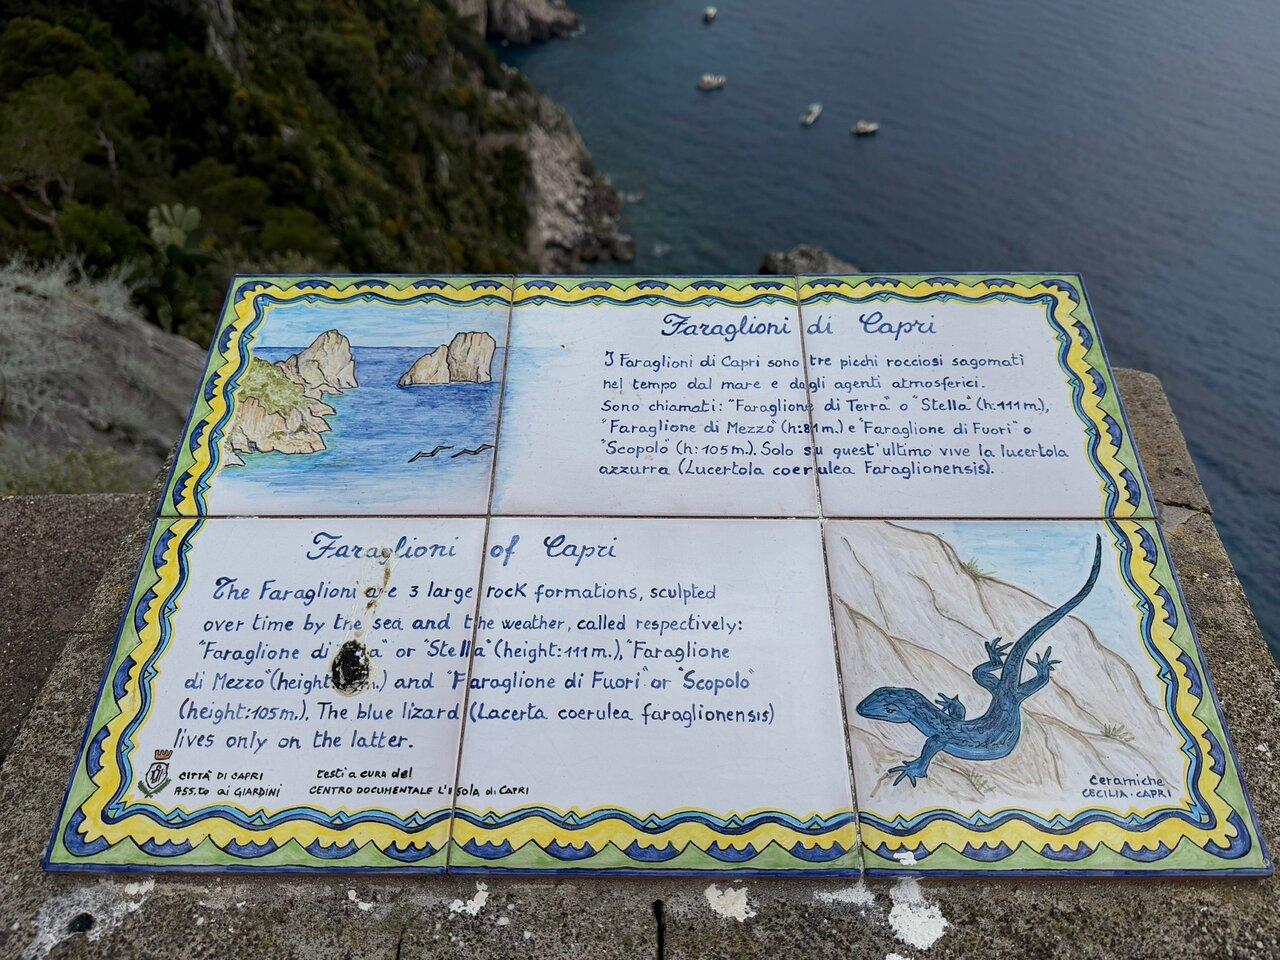 Faraglioni di Capri
I Faraglioni di Capri sono tre picchi rocciosi sagomati
nel tempo dal mare e dagli agenti atmosferici.
Sono chiamati: "Faraglione di Terra" o "Stella" (h:111m.),
"Faraglione di Mezzo" (h:81m.) e "Faraglione di Fuori" o
"Scopolo" (h:105m.). Solo su quest'ultimo vive la lucertola
azzurra (Lucertola coerulea Faraglionensis).
Faraglioni of Capri
The Faraglioni are 3 large rock formations, sculpted
over time by the sea and the weather, called respectively:
"Faraglione di Terra" or "Stella" (height:111m.), "Faraglione
di Mezzo" (height: m.) and "Faraglione di Fuori" or "Scopolo"
(height:105m.). The blue lizard (Lacerta coerulea faraglionensis)
lives only on the latter.
CITTÀ DI CAPRI
ASS.to ai GIARDINI
testi a cura del
CENTRO DOCUMENTALE L'isola di CAPRI
Ceramiche
CECILIA · CAPRI